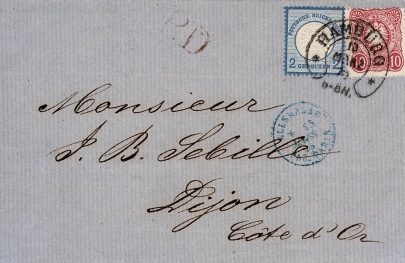 P.D.
DEUTSCHE REICHS-POST
2 2
GROSCHEN
HAMBURG
10 10
Monsieur
J. B. Sebille
Dijon
Côte d'Or